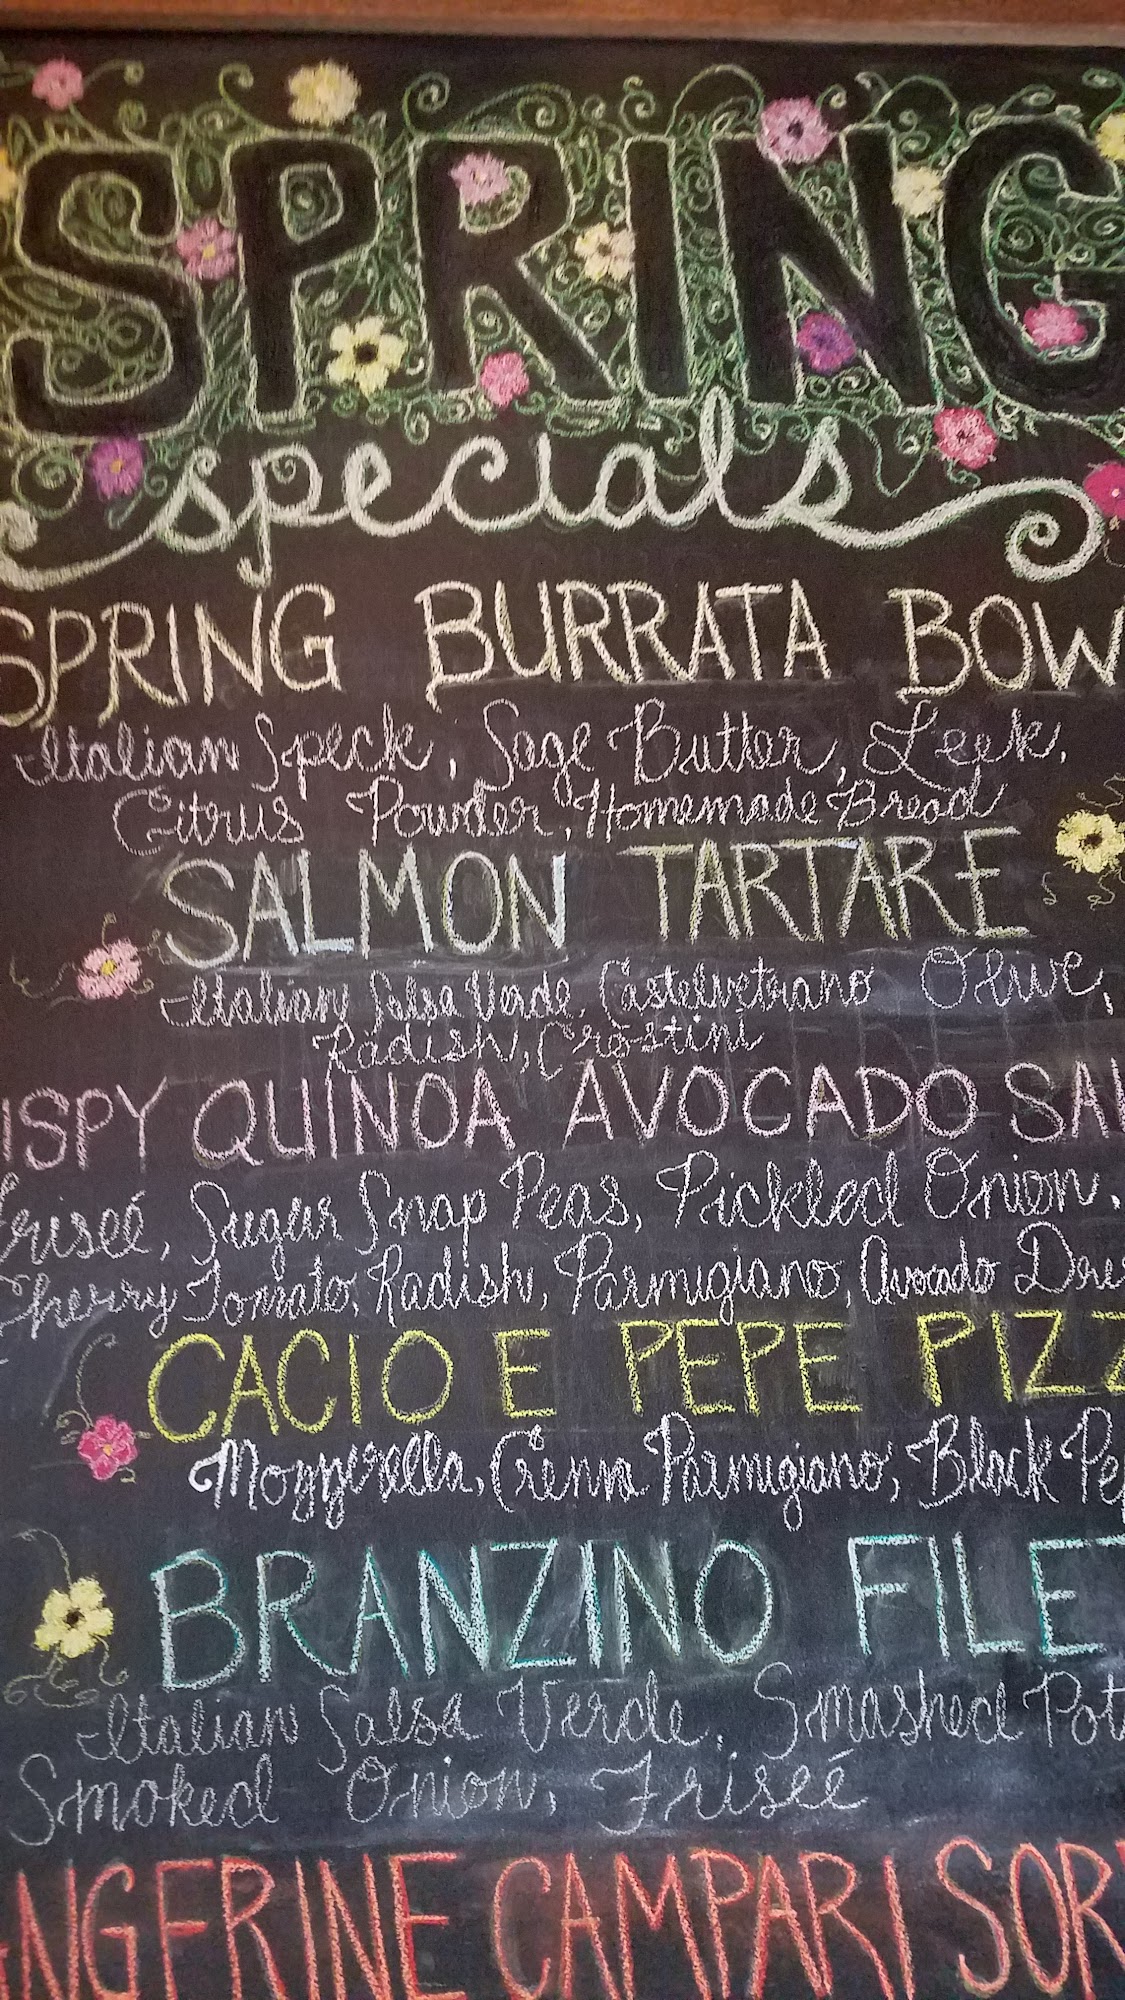 SPRING
specials
SPRING BURRATA BOW
Italian Speck, Sage Butter, Leek,
Citrus Powder, Homemade Bread
SALMON TARTARE
Italian Salsa Verde, Castelvetrano Olive,
Radish, Crostini
ISPY QUINOA AVOCADO SAL
Friseé, Sugar Snap Peas, Pickled Onion,
Cherry Tomato, Radish, Parmigiano, Avocado Dre
CACIO E PEPE PIZZ
Mozzerella, Crema Parmigiano, Black Pe
BRANZINO FILE
Italian Salsa Verde, Smashed Pot
Smoked Onion, Friseé
NGERINE CAMPARI SOR